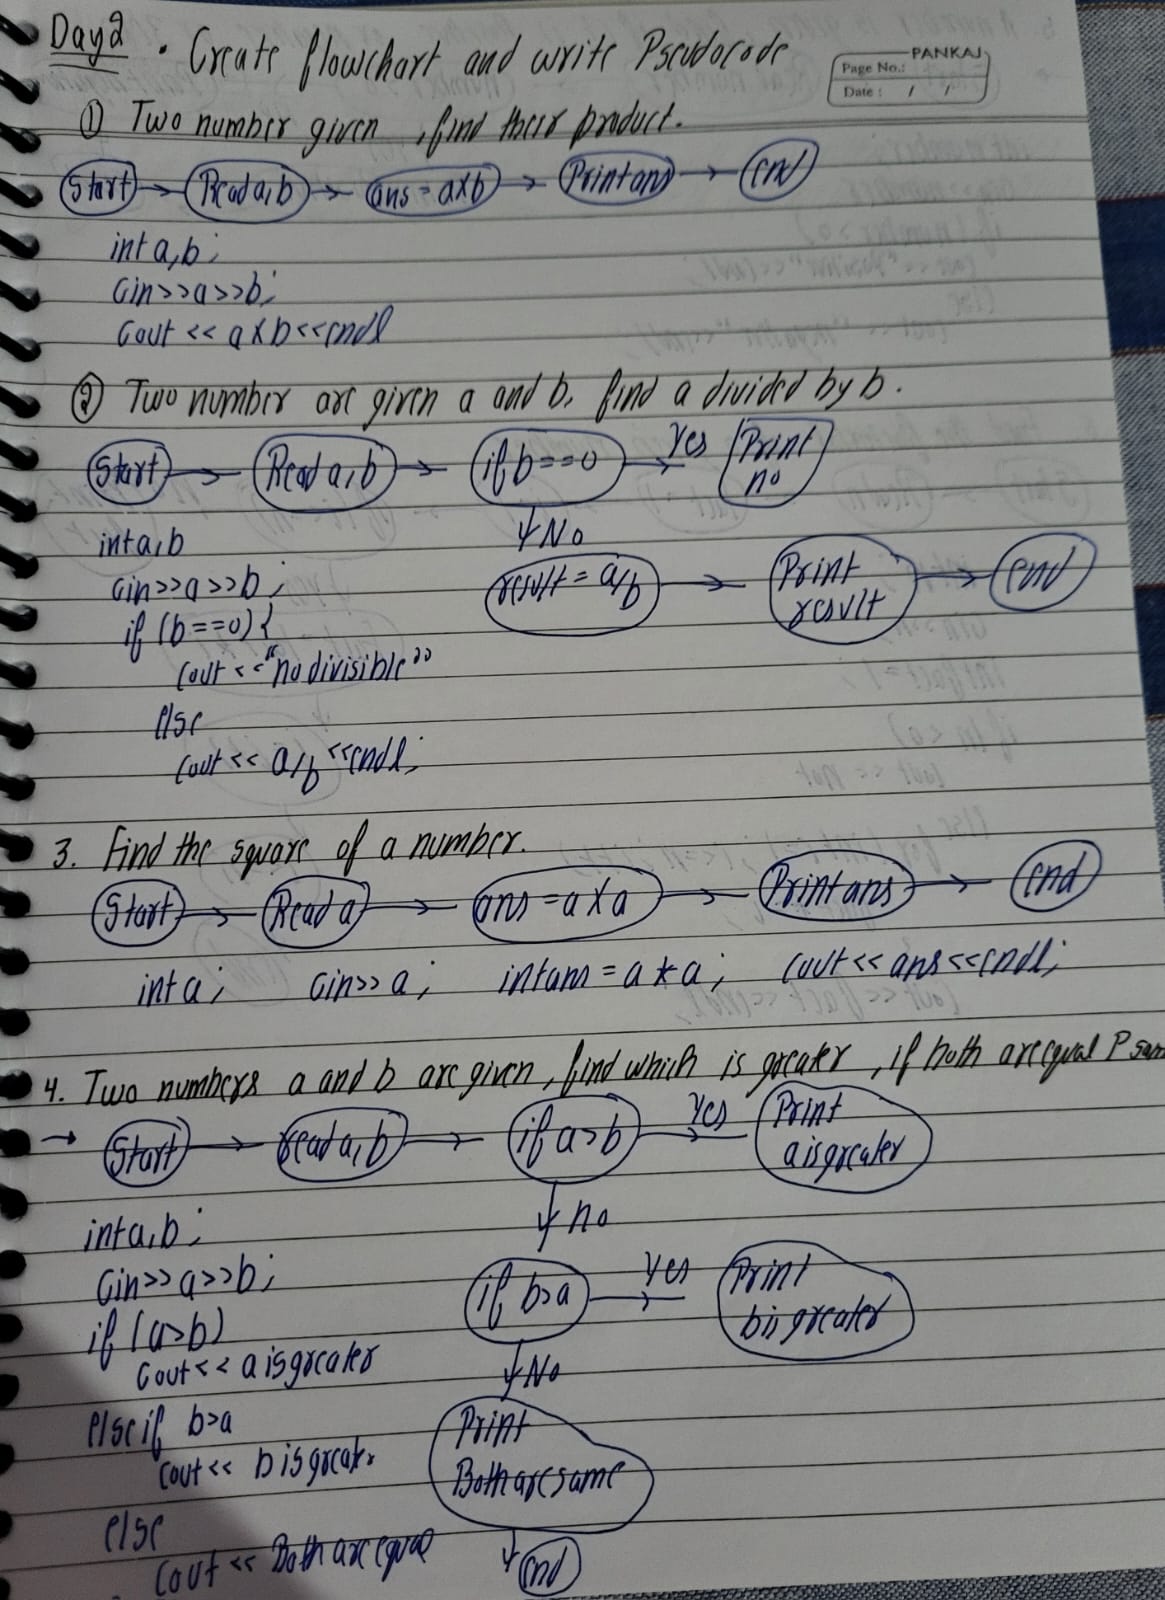 Day 2 . Create flowchart and write Pseudocode
PANKAJ
Page No.:
Date : / /
① Two number given , find their product.
Start → Read a,b → ans = a×b → Print ans → end
int a,b;
cin>>a>>b;
cout << a×b<<endl
② Two number are given a and b, find a divided by b.
Start → Read a,b → if b==0 → Yes Print no
↓ No
result = a/b → Print result → end
int a,b
cin>>a>>b;
if (b==0){
cout <<"no divisible"
else
cout << a/b <<endl;
3. Find the square of a number.
Start → Read a → ans = a×a → Print ans → end
int a; cin>> a; int ans = a*a; cout<< ans<<endl;
4. Two numbers a and b are given, find which is greater, if both are equal P sam
→ Start → read a,b → if a>b → Yes Print a is greater
↓ no
if b>a → Yes Print b is greater
↓ No
Print Both are same
↓ end
int a,b;
cin>>a>>b;
if (a>b)
cout<< a is greater
else if b>a
cout<< b is great.
else
cout << Both are equal